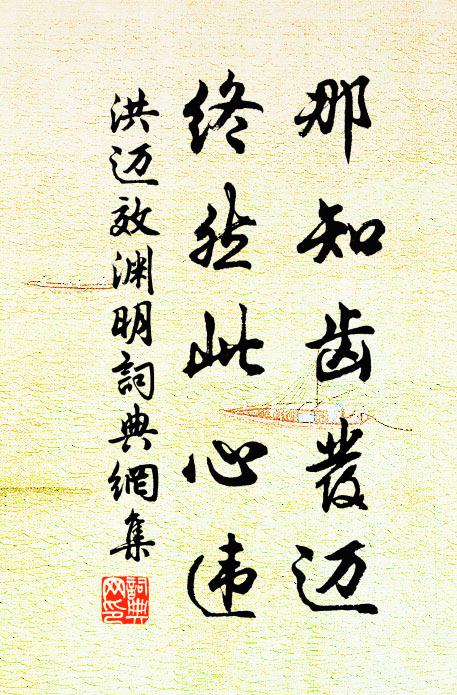 那知齿发迈
终然此心违
洪迈效渊明詞典網集
詞典网印